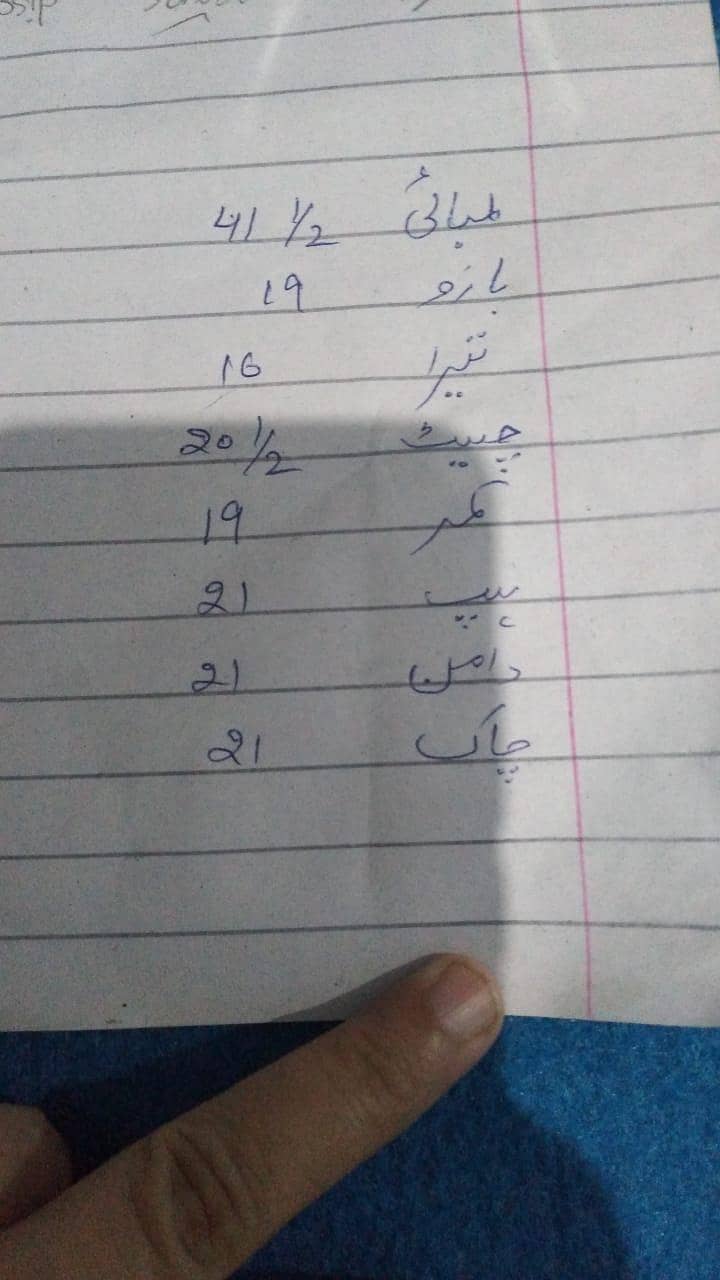 لمبائی 41 1/2
بازو 19
تیرا 16
چیسٹ 20 1/2
کمر 19
ہیپ 21
دامن 21
چاک 21